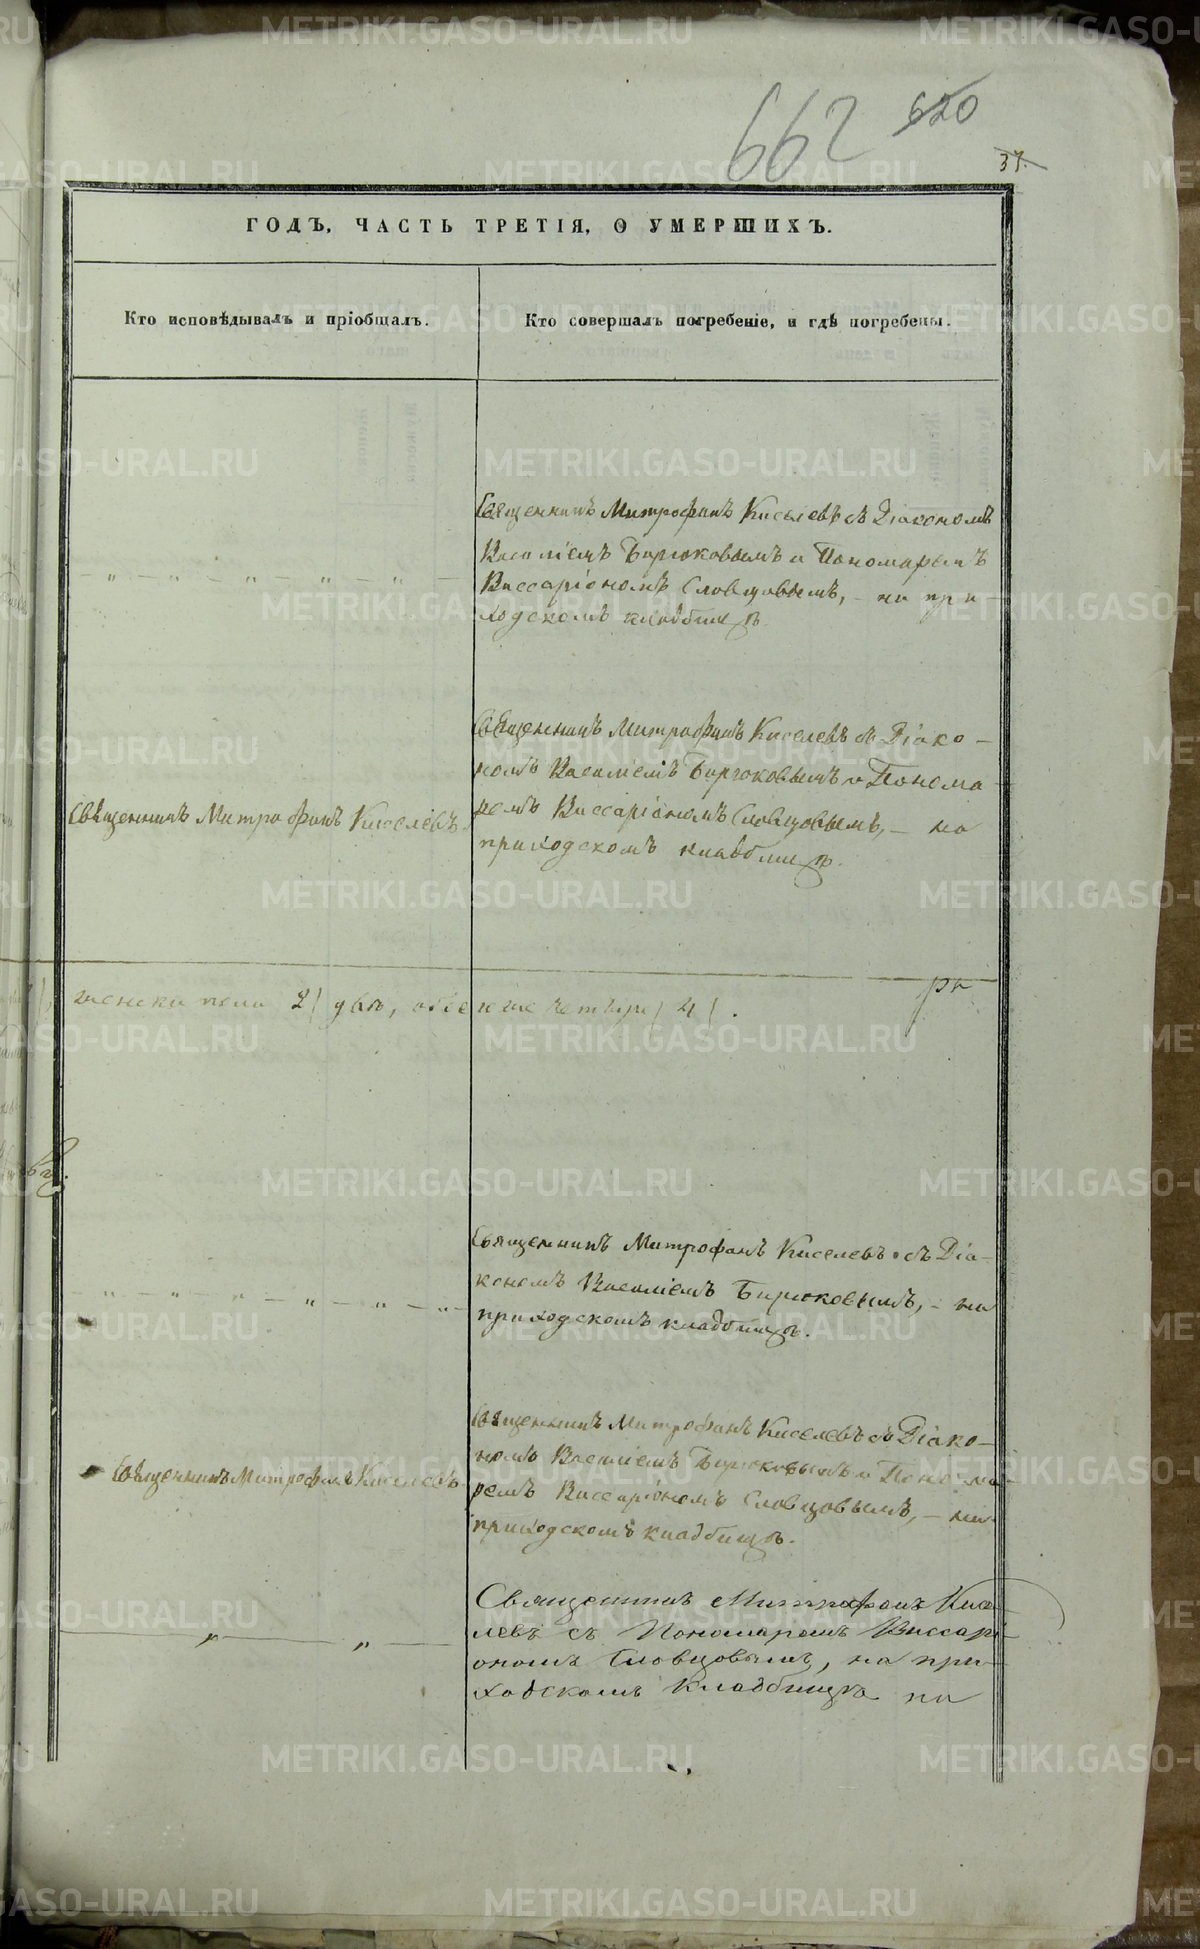 662 620
37.
ГОДЪ, ЧАСТЬ ТРЕТІЯ, О УМЕРШИХЪ.
Кто исповѣдывалъ и пріобщалъ.
Кто совершалъ погребеніе, и гдѣ погребены.
Священникъ Митрофанъ Киселевъ съ Діакономъ
Василіемъ Бирюковымъ и Пономаремъ
— „ — „ — „ — „ — „ —
Виссаріономъ Словцовымъ, – на при–
ходскомъ кладбищѣ
Священникъ Митрофанъ Киселевъ съ Діако–
номъ Василіемъ Бирюковымъ и Понома
Священникъ Митрофанъ Киселевъ
ремъ Виссаріономъ Словцовымъ, – на
приходскомъ кладбищѣ.
женска пола 2) двѣ, обоего же четыре (4).
Священникъ Митрофанъ Киселевъ съ Діа–
кономъ Василіемъ Бирюковымъ, – на
— „ — „ — „ — „ — „ — „ —
приходскомъ кладбищѣ.
Священникъ Митрофанъ Киселевъ съ Діако–
номъ Василіемъ Бирюковымъ и Понома–
Священникъ Митрофанъ Киселевъ
ремъ Виссаріономъ Словцовымъ, – на
приходскомъ кладбищѣ.
Священникъ Митрофанъ Кисе
левъ съ Пономаремъ Виссарі
— „ — „ —
ономъ Словцовымъ, на при–
ходскомъ кладбищѣ
METRIKI.GASO-URAL.RU